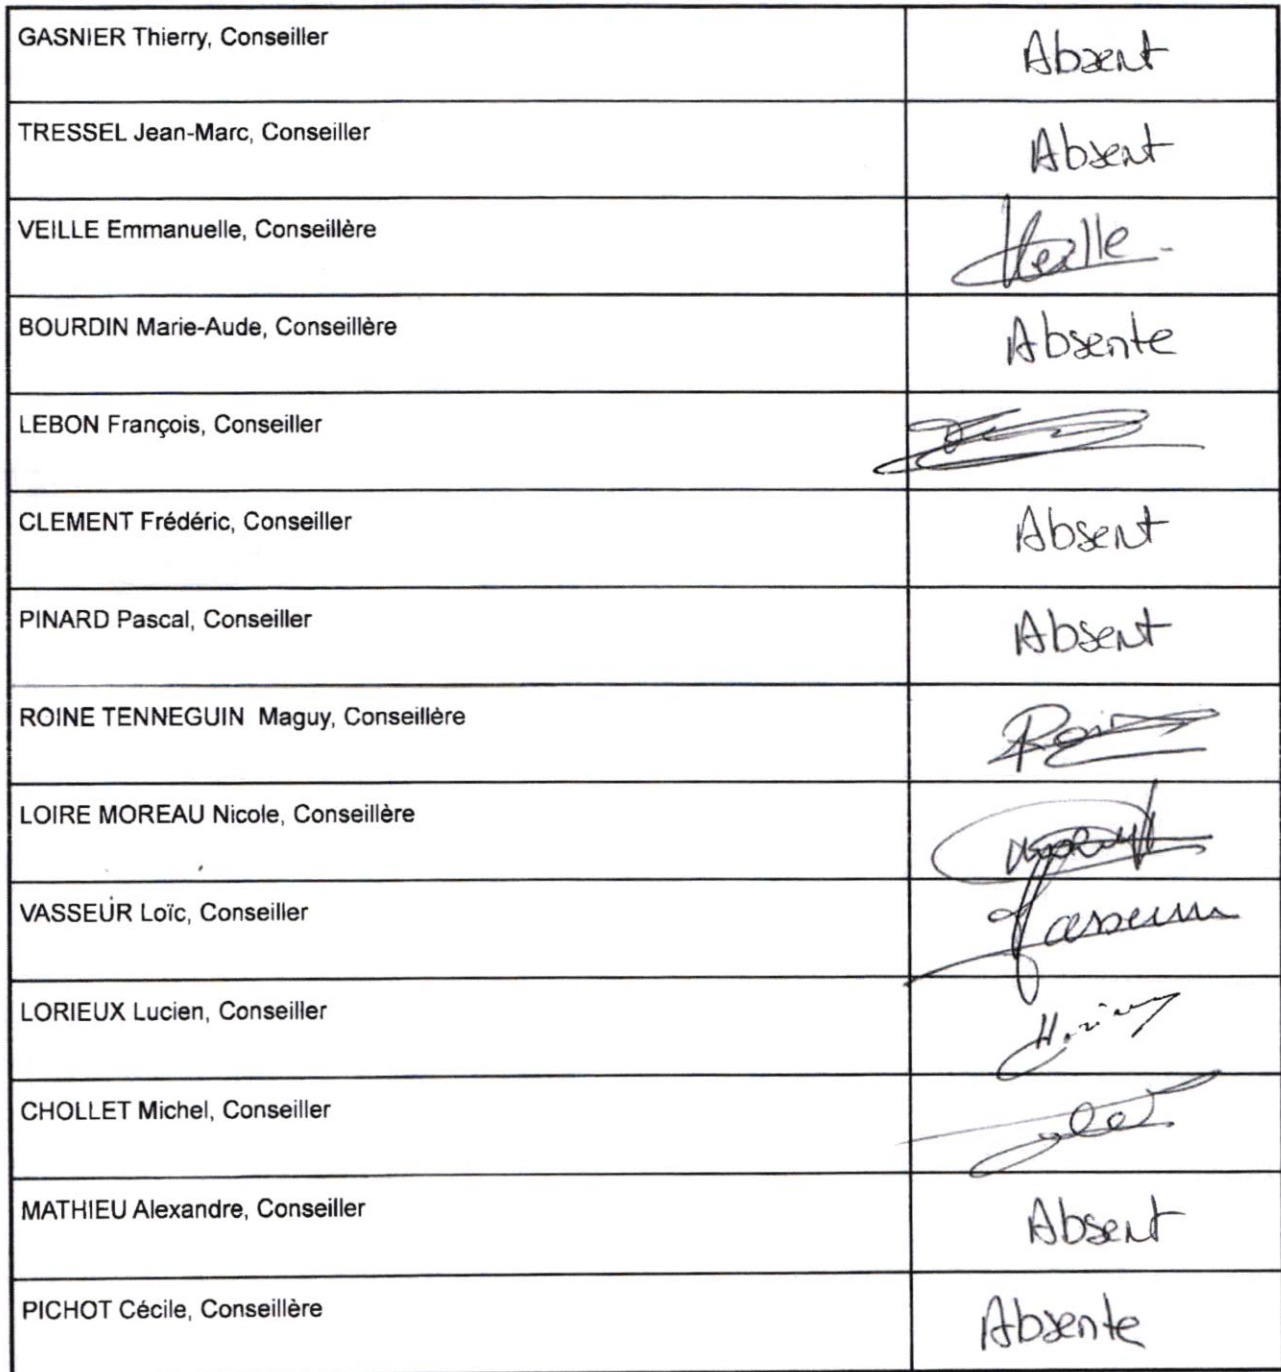 GASNIER Thierry, Conseiller
Absent
TRESSEL Jean-Marc, Conseiller
Absent
VEILLE Emmanuelle, Conseillère
Veille
BOURDIN Marie-Aude, Conseillère
Absente
LEBON François, Conseiller
CLEMENT Frédéric, Conseiller
Absent
PINARD Pascal, Conseiller
Absent
ROINE TENNEGUIN Maguy, Conseillère
LOIRE MOREAU Nicole, Conseillère
VASSEUR Loïc, Conseiller
Vasseur
LORIEUX Lucien, Conseiller
CHOLLET Michel, Conseiller
MATHIEU Alexandre, Conseiller
Absent
PICHOT Cécile, Conseillère
Absente